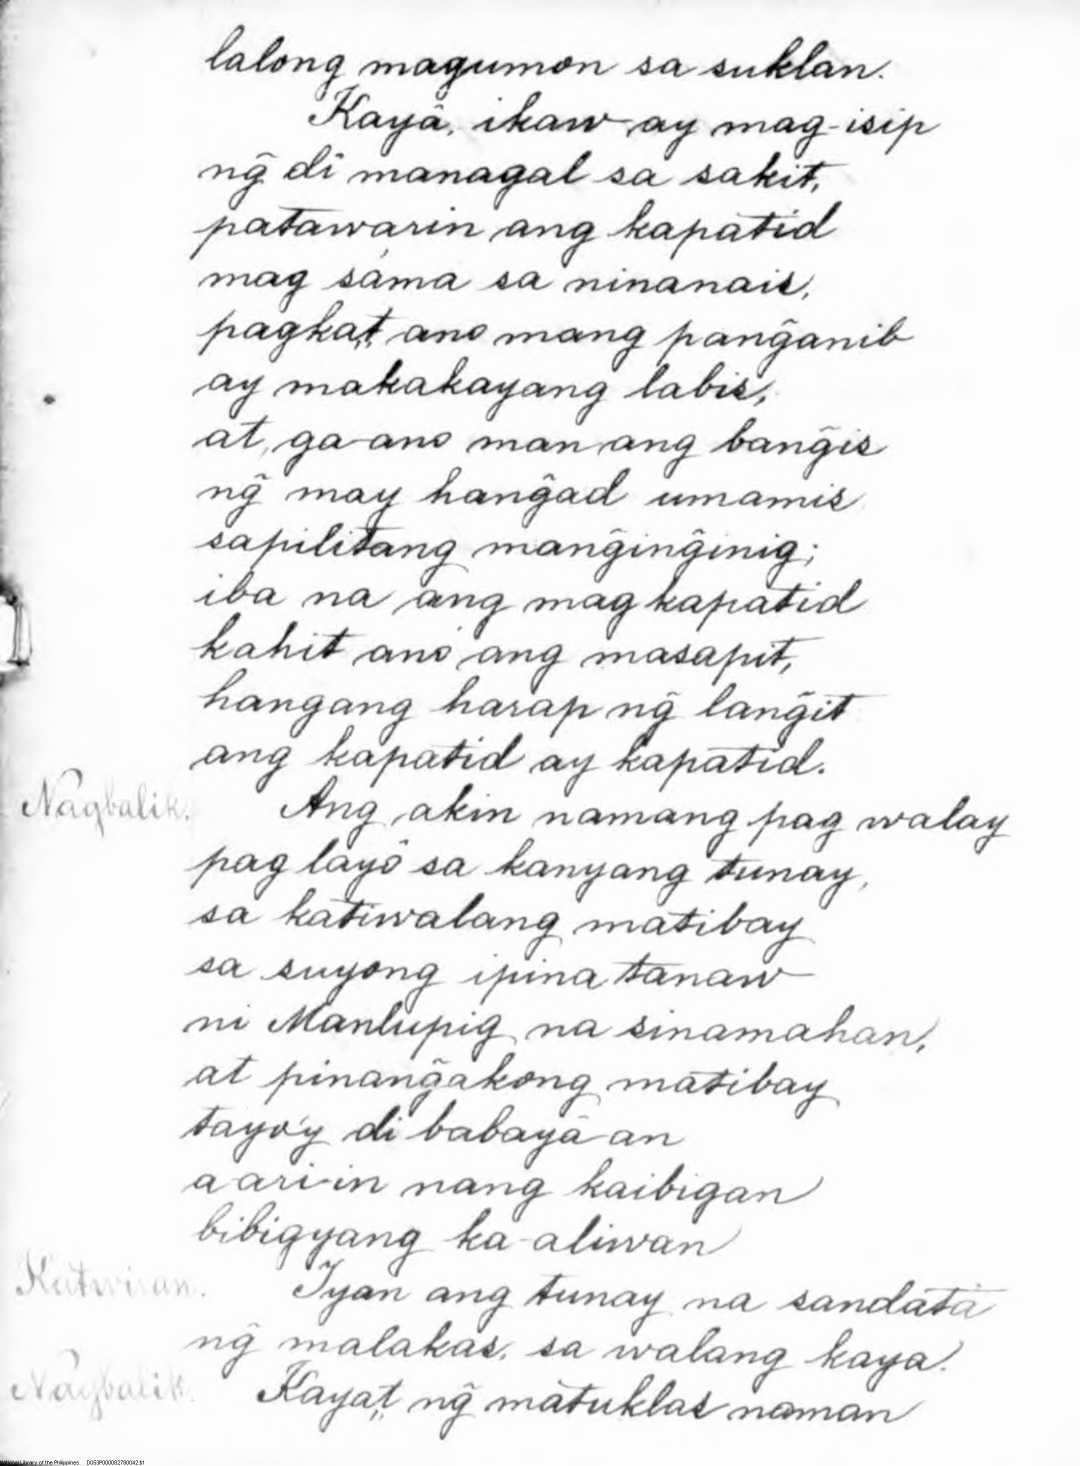 lalong magumon sa suklan.
Kayâ, ikaw ay mag-isip
ng̃ di managal sa sakit,
patawarin ang kapatid
mag sáma sa ninanais,
pagka,t, ano mang pang̃anib
ay makakayang labis,
at, ga-ano man ang bang̃is
ng̃ may hang̃ad umamis
sapilitang mang̃ing̃inig;
iba na ang mag kapatid
kahit anó ang masapit,
hangang harap ng̃ lang̃it
ang kapatid ay kapatid.
Nagbalik. Ang akin namang pag walay
pag layô sa kanyang tunay,
sa katiwalang matibay
sa suyong ipina tanaw
ni Manlupig na sinamahan,
at pinang̃akong matibay
tayo'y di babayâ-an
a-ari-in nang kaibigan
bibigyang ka-aliwan
Katwiran. Iyan ang tunay na sandatà
ng̃ malakas, sa walang kaya.
Nagbalik. Kaya,t, ng̃ màtuklas naman
National Library of the Philippines D053P000082780042.tif